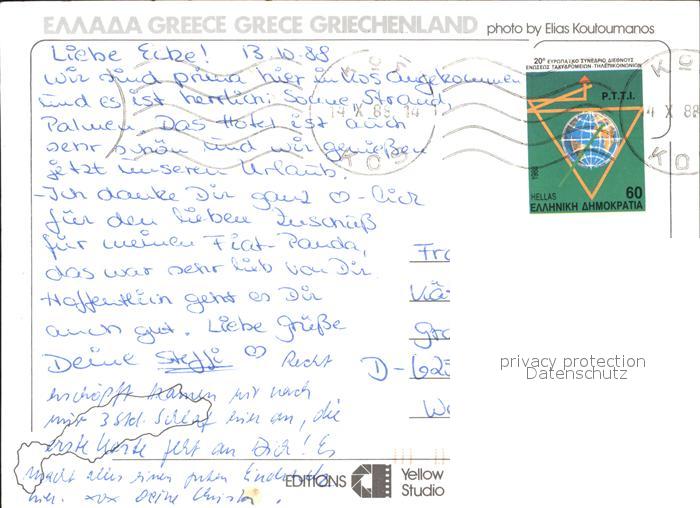 ΕΛΛΑΔΑ GREECE GRECE GRIECHENLAND photo by Elias Koutoumanos
Liebe Ecke! 13.10.88
wir sind prima hier in Kos angekommen
und es ist herrlich: Sonne, Strand,
Palmen. Das Hotel ist auch
sehr schön und wir genießen
jetzt unseren Urlaub.
-Ich danke Dir ganz ♡-lich
für den lieben Zuschuß
für meinen Fiat-Panda,
das war sehr lieb von Dir.
Hoffentlich geht es Dir
auch gut. Liebe Grüße
Deine Steffi ♡ Recht
erschöpft kamen wir nach
mit 3 Std. Schlaf hier an, die
erste Karte geht an Dich! Es
macht alles einen guten Eindruck
hier. xox Deine
20° ΕΥΡΩΠΑΪΚΟ ΣΥΝΕΔΡΙΟ ΔΙΕΘΝΟΥΣ
ΕΝΩΣΕΩΣ ΤΑΧΥΔΡΟΜΕΙΩΝ-ΤΗΛΕΠΙΚΟΙΝΩΝΙΩΝ
P.T.T.I.
1988
HELLAS 60
ΕΛΛΗΝΙΚΗ ΔΗΜΟΚΡΑΤΙΑ
14 X 88 14
4 X 88
Fra
Gra
D-
privacy protection
Datenschutz
EDITIONS Yellow
Studio